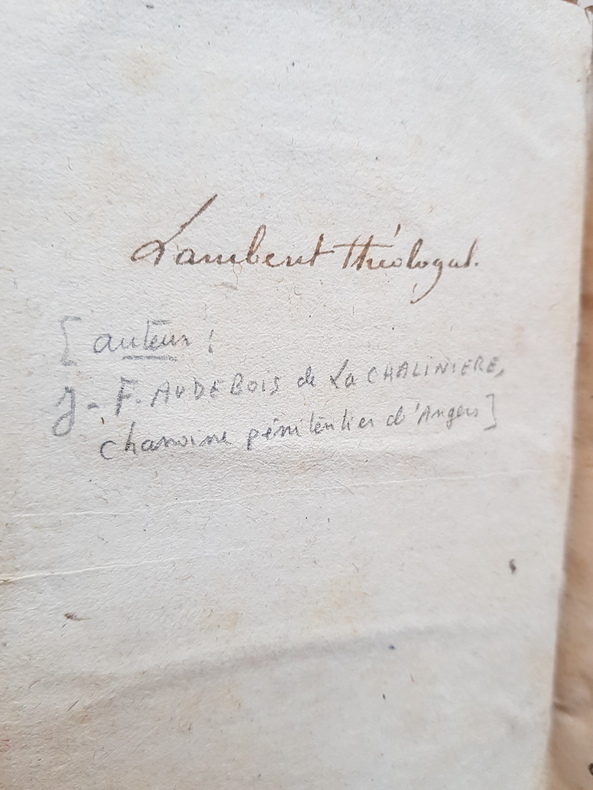 Lambert théologal.
[auteur :
J-F. AUDEBOIS de La CHALINIERE,
chanoine pénitentier d'Angers]